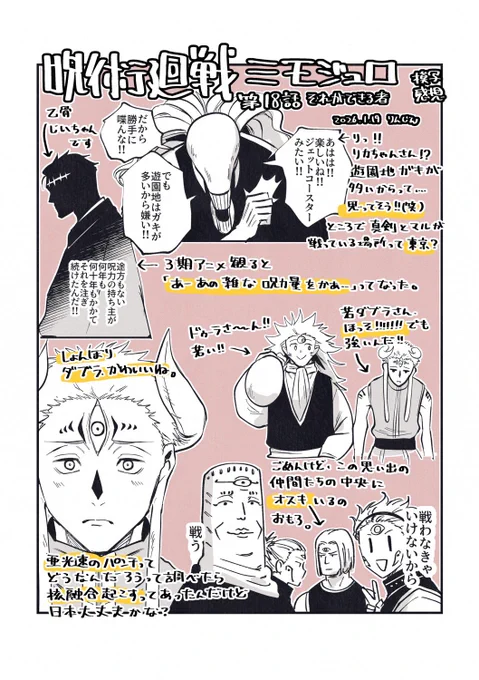 呪術廻戦 ミモジュロ
模写感想
第18話 それができる者
2026.1.19 りんじん
乙骨
じいちゃん
です
だから
勝手に
喋んな!!
あはは!!
楽しいね!!
ジェットコースター
みたい!!
でも
遊園地はガキが
多いから嫌い!!
りっ!!
リカちゃんさん!?
遊園地ガキが
多いからって…
思ってそう!!(笑)
ところで真剣とマルが
戦っている場所って東京?
途方もない
呪力の持ち主が
何年も
何十年もかけて
それを注ぎ
続けたんだ!!
3期アニメ観ると
「あーあの雑な呪力量をかぁ…」ってなった。
しょんぼり
ダブラ、かわいいね。
ドゥラさ〜ん!!
若い!!
若ダブラさん、
ほっそ!!!!!!でも
強いんだ!!
ごめんけど、この思い出の
仲間たちの中央に
オスもいるの
おもろ。
戦う
戦わなきゃ
いけないから
亜光速のパンチって
どうなんだろうって調べたら
核融合起こすってあったんだけど
日本大丈夫かな?